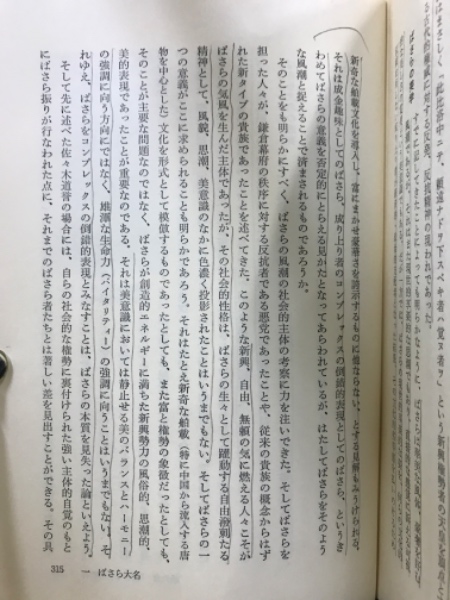 はまさしく「此比洛中ニテ、
という新興権勢者の天皇を頂点と
する古代的権威に対する反発、反抗精神の現われであった。
ばさらの美学
新奇な舶載文化を導入し、富にまかせ豪華さを誇示するものに他ならない、とする見解もみうけられる。
それは成金趣味としてのばさら、成り上り者のコンプレックスの倒錯的表現としてのばさら、というき
わめてばさらの意義を否定的にとらえる見かたとなってあらわれているが、はたしてばさらをそのよう
な風潮と捉えることで済まされるものであろうか。
そのことをも明らかにすべく、ばさらの風潮の社会的主体の考察に力を注いできた。そしてばさらを
担った人々が、鎌倉幕府の秩序に対する反抗者である悪党であったことや、従来の貴族の概念からはず
れた新タイプの貴族であったことを述べてきた。このような新興、自由、無頼の気に燃える人々こそが
ばさらの気風を生んだ主体であったが、その社会的性格は、ばさらの生々として躍動する自由溌剌たる
精神として、風貌、思潮、美意識のなかに色濃く投影されたことはいうまでもない。そしてばさらの一
つの意義がここに求められることも明らかであろう。それはたとえ新奇な舶載（特に中国から流入する唐
物を中心とした）文化を形式として模倣するものであったとしても、また富と権勢の象徴だったとしても、
そのことが主要な問題なのではなく、ばさらが創造的エネルギーに満ちた新興勢力の風俗的、思潮的、
美的表現であったことが重要なのである。それは美意識においては静止せる美のバランスとハーモニー
の強調に向う方向にではなく、雄渾な生命力（バイタリティー）の強調に向うことはいうまでもない。そ
れゆえ、ばさらをコンプレックスの倒錯的表現とみなすことは、ばさらの本質を見失った論といえよう。
そして先に述べた佐々木道誉の場合には、自らの社会的な権勢に裏付けられた強い主体的自覚のもと
にばさら振りが行なわれた点に、それまでのばさら者たちとは著しい差を見出すことができる。その具
315 一 ばさら大名